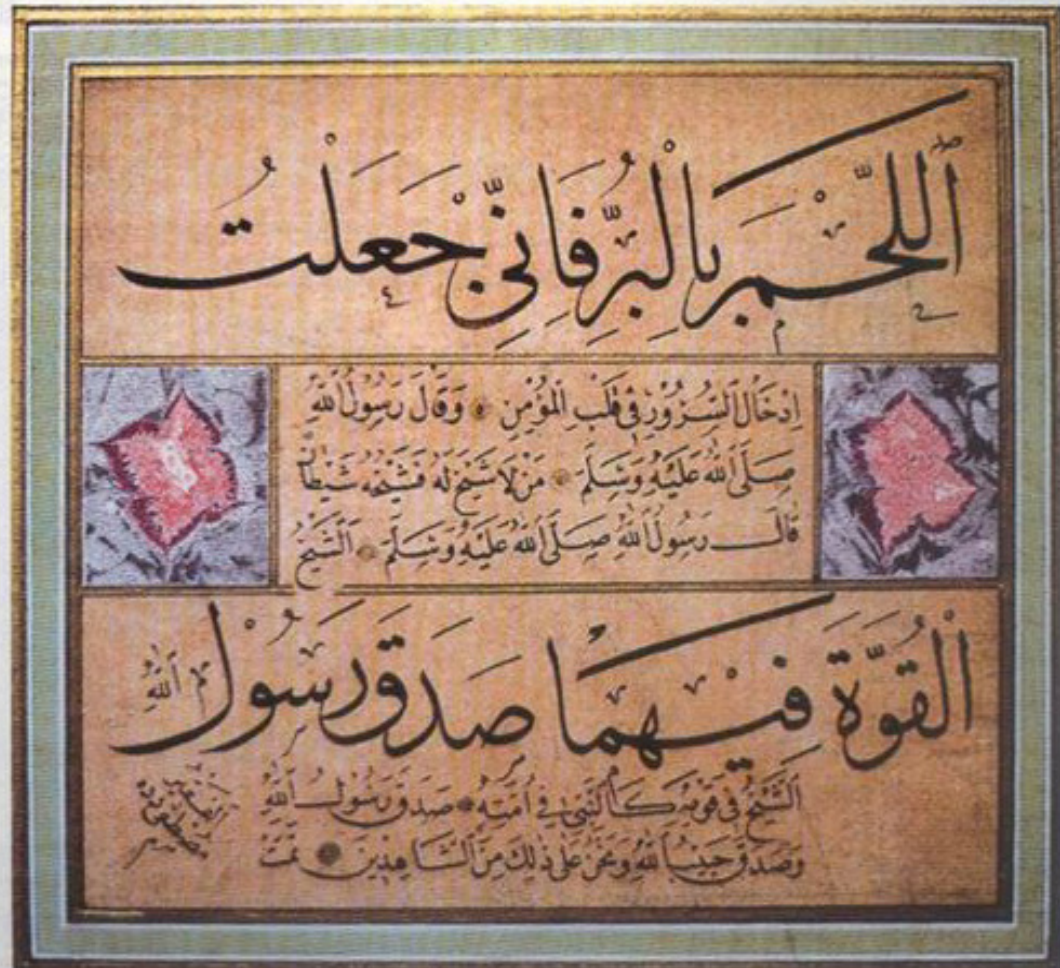 اَللَّحْمَ بِالْبُرِّ فَإِنِّي جَعَلْتُ
اِدْخَالُ السُّرُورِ فِي قَلْبِ الْمُؤْمِنِ وَقَالَ رَسُولُ اللهِ
صَلَّى اللهُ عَلَيْهِ وَسَلَّمَ مَنْ لَا شَيْخَ لَهُ فَشَيْخُهُ شَيْطَانٌ
قَالَ رَسُولُ اللهِ صَلَّى اللهُ عَلَيْهِ وَسَلَّمَ اَلشَّيْخُ
الْقُوَّةَ فِيْهِمَا صَدَقَ رَسُولُ اللهِ
اَلشَّيْخُ فِي قَوْمِهِ كَالنَّبِيِّ فِي أُمَّتِهِ صَدَقَ رَسُولُ اللهِ
وَصَدَقَ حَبِيبُ اللهِ وَنَحْنُ عَلَى ذٰلِكَ مِنَ الشَّاهِدِينَ تَمَّتْ